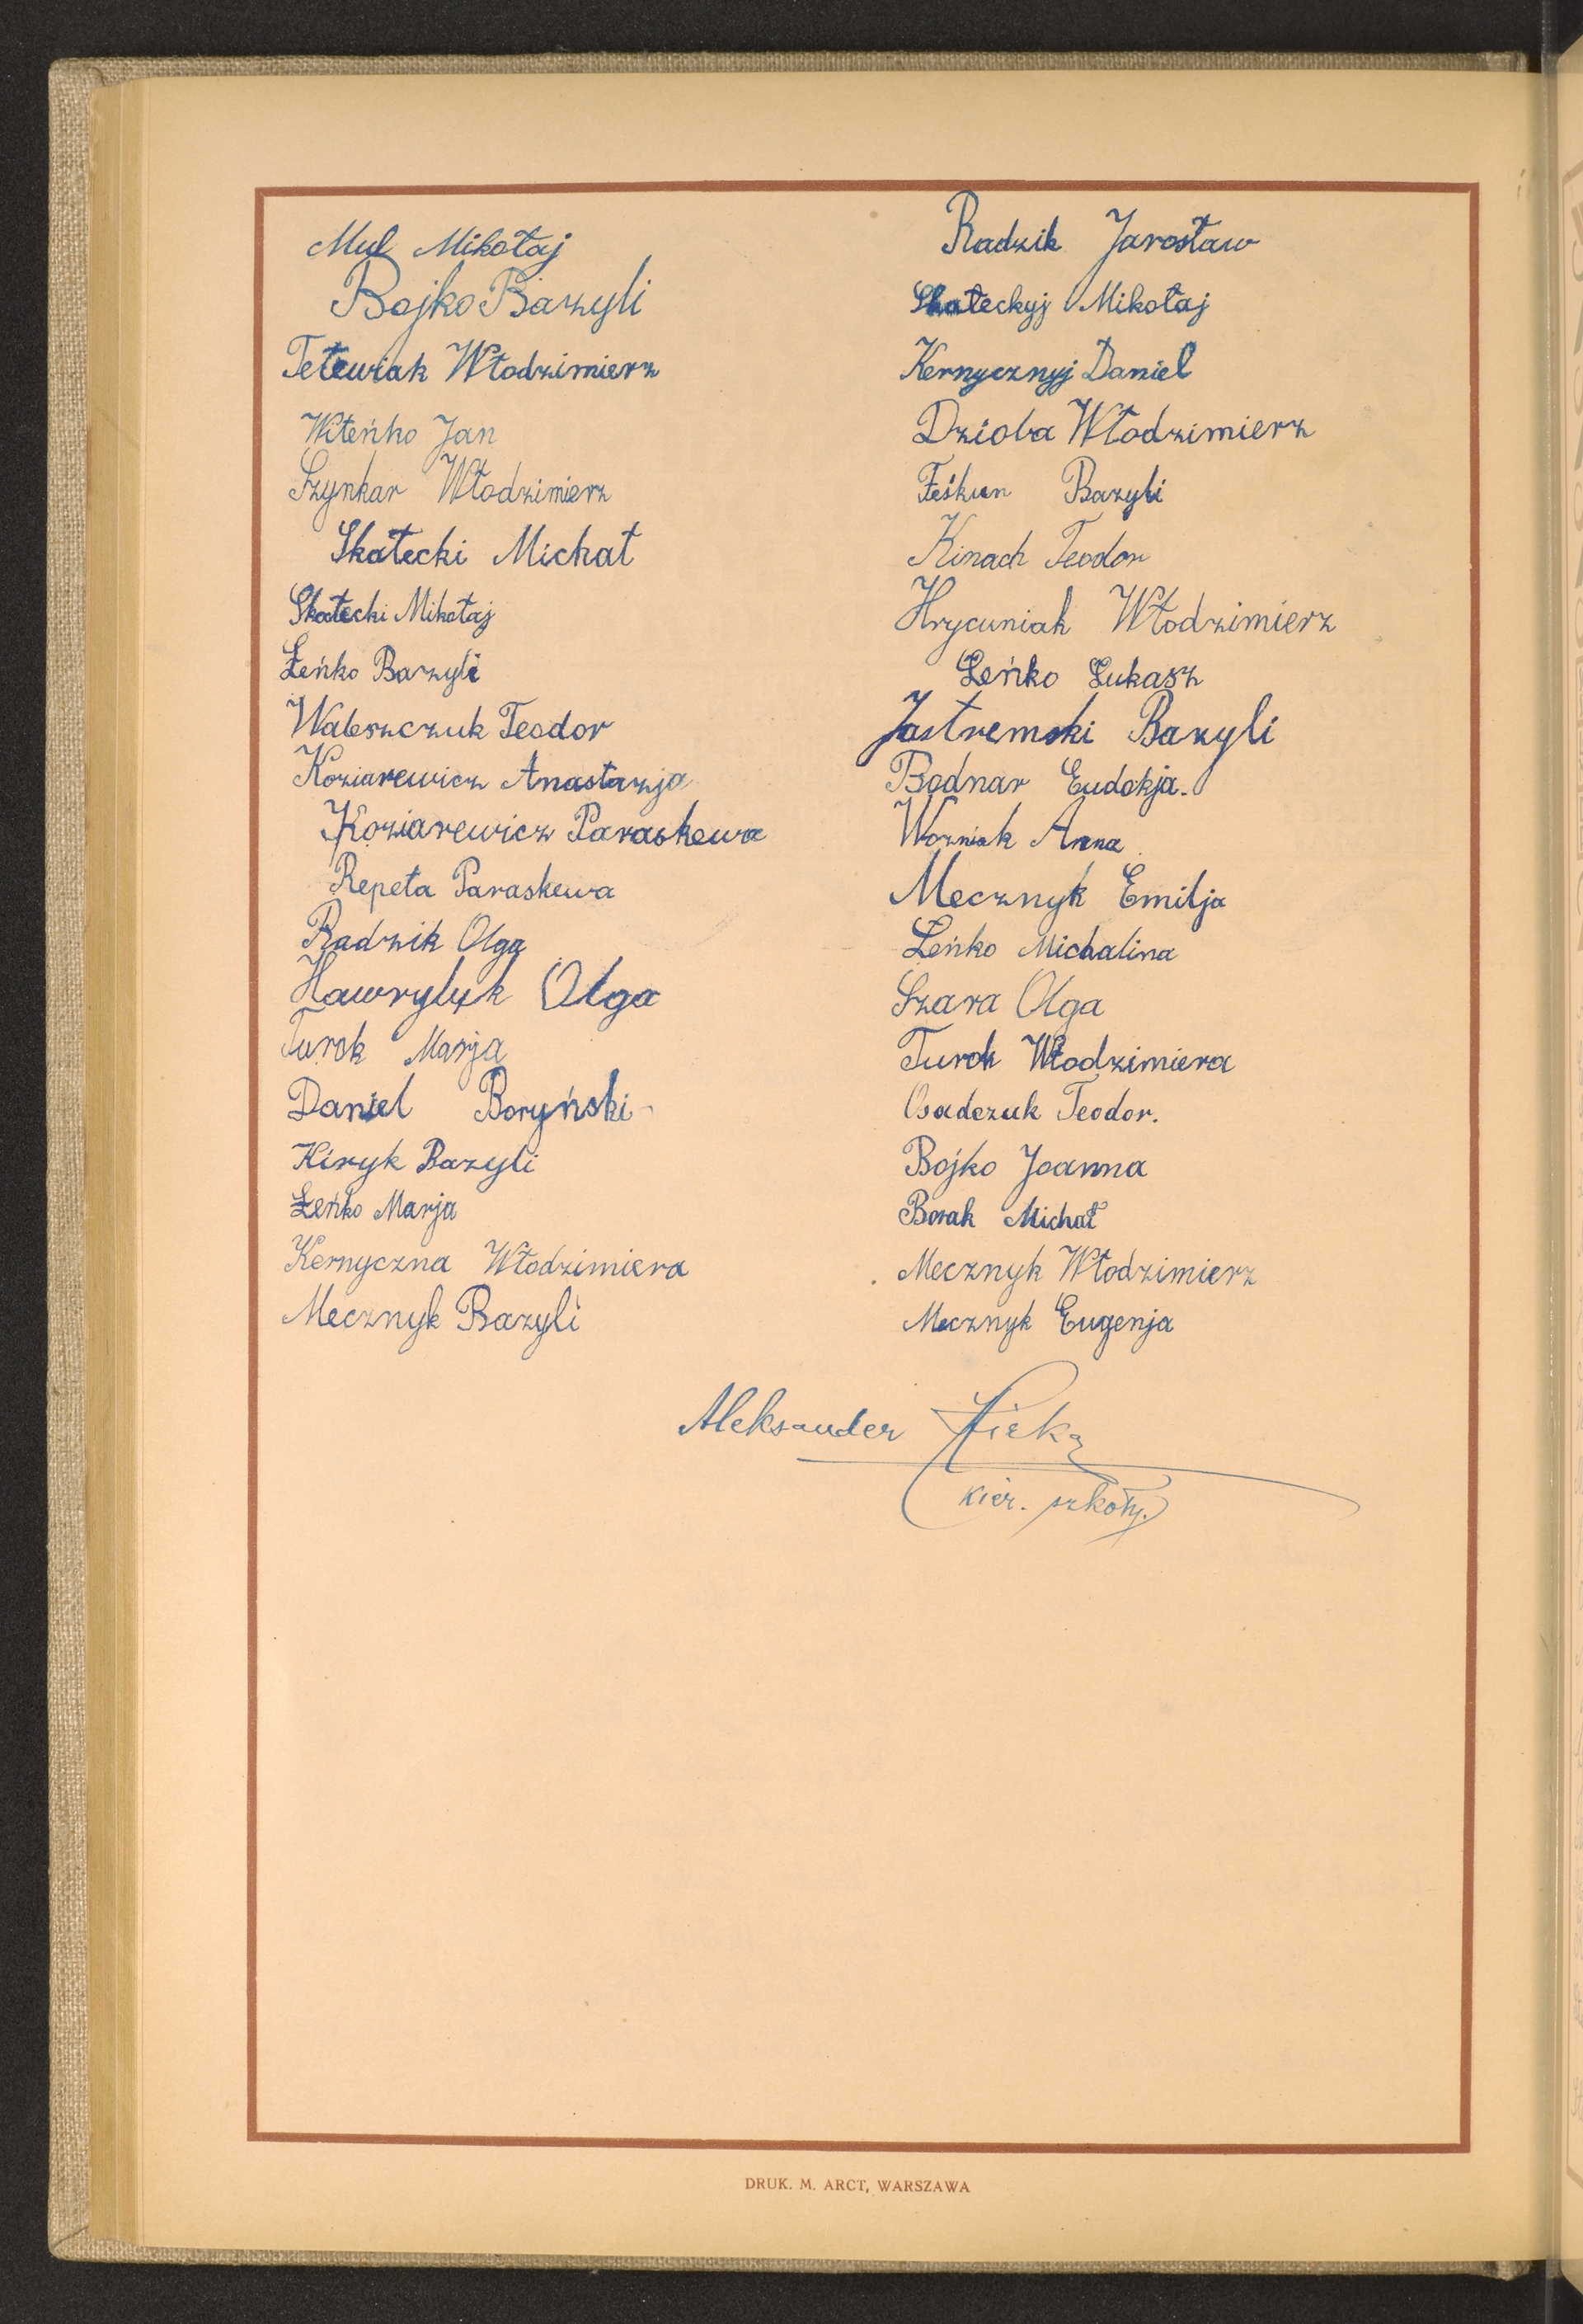 Mul Mikołaj
Bojko Bazyli
Tetewiak Włodzimierz
Witeńko Jan
Szynkar Włodzimierz
Skałecki Michał
Skałecki Mikołaj
Łeńko Bazyli
Waleszczuk Teodor
Koziarewicz Anastazja
Koziarewicz Paraskewa
Repeta Paraskewa
Radzik Olga
Hawryluk Olga
Turok Marja
Daniel Boryński
Kiryk Bazyli
Łeńko Marja
Kernyczna Włodzimiera
Mecznyk Bazyli
Radzik Jarosław
Skałeckyj Mikołaj
Kernycznyj Daniel
Dzioba Włodzimierz
Feśkun Bazyli
Kinach Teodor
Hrycuniak Włodzimierz
Łeńko Łukasz
Jastremski Bazyli
Bodnar Eudokja.
Wozniak Anna
Mecznyk Emilja
Leńko Michalina
Szara Olga
Turok Włodzimiera
Osadczuk Teodor.
Bojko Joanna
Borak Michał
Mecznyk Włodzimierz
Mecznyk Eugenja
Aleksander
kier. szkoły.
DRUK. M. ARCT, WARSZAWA